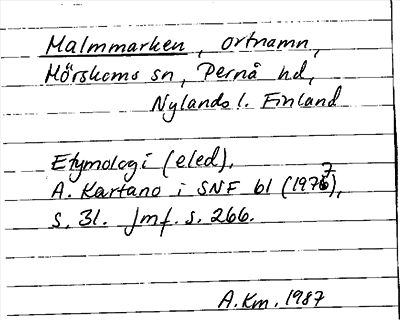 Malmmarken, ortnamn,
Mörskoms sn, Pernå hd,
Nylands l. Finland
Etymologi (eled),
A. Kartano i SNF 61 (1977),
s. 31. Jmf. s. 266.
A.Km. 1987